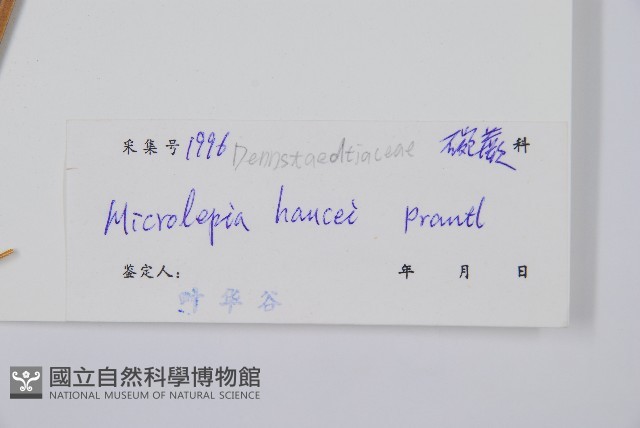 采集号 1996 Dennstaedtiaceae 碗蕨 科
Microlepia hancei prantl
鉴定人: 年 月 日
叶华谷
國立自然科學博物館
NATIONAL MUSEUM OF NATURAL SCIENCE